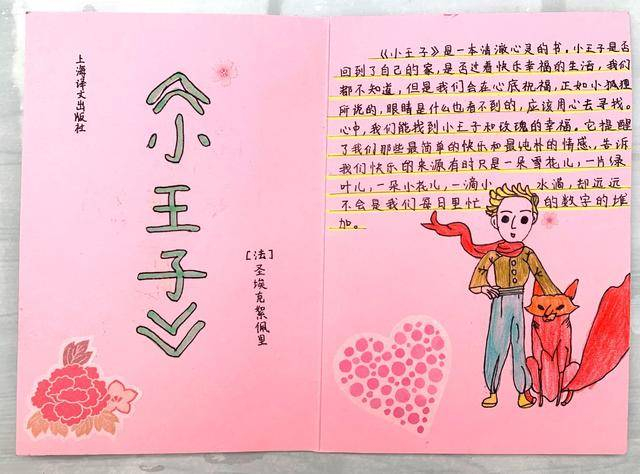 上海译文出版社
《小王子》
[法]圣埃克絮佩里
《小王子》是一本清澈心灵的书。小王子是否
回到了自己的家,是否过着快乐幸福的生活,我们
都不知道,但是我们会在心底祝福,正如小狐狸
所说的,眼睛是什么也看不到的,应该用心去寻找。
心中,我们能找到小王子和玫瑰的幸福。它提醒
了我们那些最简单的快乐和最纯朴的情感,告诉
我们快乐的来源有时只是一朵雪花儿,一片绿
叶儿,一朵小花儿,一滴小水滴,却远远
不会是我们每日里忙的数字的堆
加。